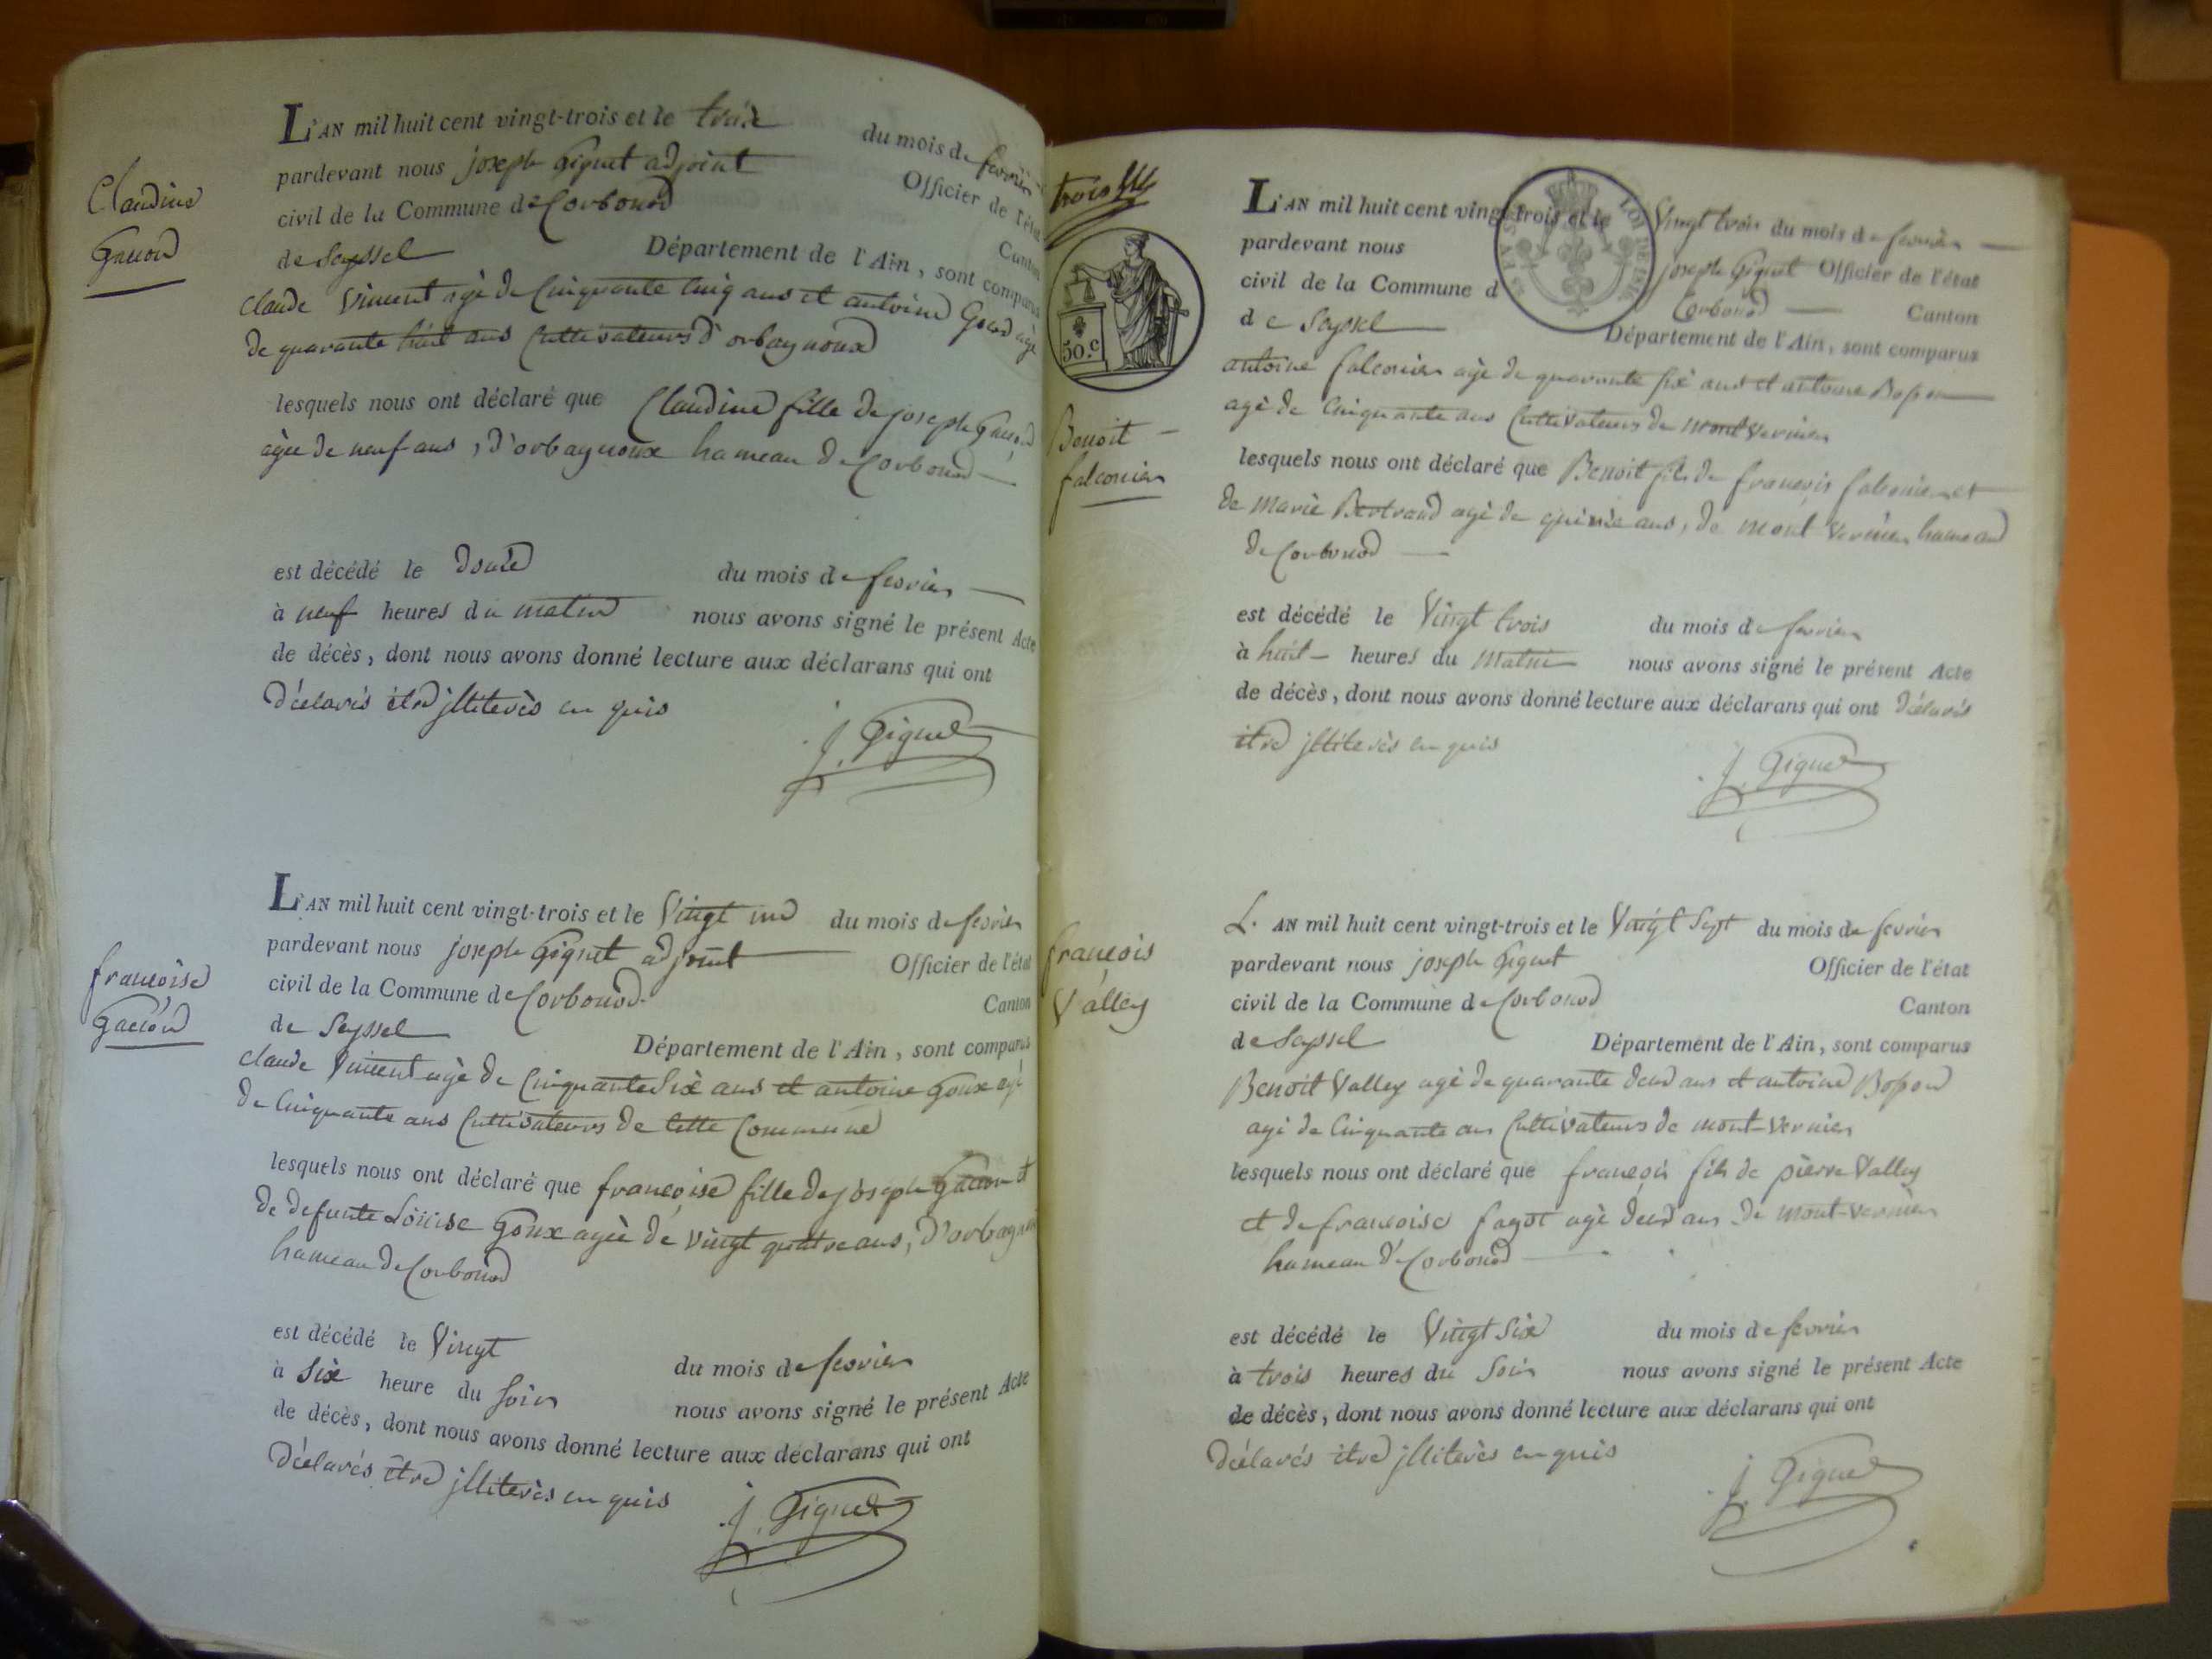 L'AN mil huit cent vingt-trois et le treize du mois de fevrier
pardevant nous joseph Gignet adjoint Officier de l'état
civil de la Commune de Corbonod Canton
de Seyssel Département de l'Ain, sont comparus
Claude Vincent agé de Cinquante Cinq ans et antoine agé
de quarante huit ans Cultivateurs d'orbagnoux
Claudine
lesquels nous ont déclaré que Claudine fille de joseph
agée de neuf ans, d'orbagnoux hameau de Corbonod
est décédé le douze du mois de fevrier
à neuf heures du matin nous avons signé le présent Acte
de décès, dont nous avons donné lecture aux déclarans qui ont
déclarés être jlliterés en quis
j. Gignet
L'AN mil huit cent vingt-trois et le Vingt un du mois de fevrier
pardevant nous joseph Gignet adjoint Officier de l'état
civil de la Commune de Corbonod Canton
de Seyssel Département de l'Ain, sont comparus
Claude Vincent agé de Cinquante Six ans et antoine Goux agé
de Cinquante ans Cultivateurs de Cette Commune
francoise
Gacon
lesquels nous ont déclaré que françoise fille de joseph Gacon et
de defunte Louise Goux agée de vingt quatre ans, d'orbagnoux
hameau de Corbonod
est décédé le Vingt du mois de fevrier
à Six heure du Soir nous avons signé le présent Acte
de décès, dont nous avons donné lecture aux déclarans qui ont
déclarés être jlliterés en quis
j. Gignet
trois
50.c
L'AN mil huit cent vingt-trois et le Vingt trois du mois de fevrier
pardevant nous joseph Gignet Officier de l'état
civil de la Commune d Corbonod Canton
de Seyssel Département de l'Ain, sont comparus
antoine falconier agé de quarante six ans et antoine Bosson
agé de Cinquante ans Cultivateurs de mont Vernier
Benoit
falconier
lesquels nous ont déclaré que Benoit fils de françois falconier et
de Marie Bertrand agé de quinze ans, de mont Vernier hameau
de Corbonod
est décédé le Vingt trois du mois de fevrier
à huit heures du Matin nous avons signé le présent Acte
de décès, dont nous avons donné lecture aux déclarans qui ont déclarés
être jlliterés en quis
j. Gignet
L'AN mil huit cent vingt-trois et le Vingt Sept du mois de fevrier
pardevant nous joseph Gignet Officier de l'état
civil de la Commune de Corbonod Canton
de Seyssel Département de l'Ain, sont comparus
françois
Valley
Benoit Valley agé de quarante deux ans et antoine Bosson
agé de Cinquante ans Cultivateurs de mont-Vernier
lesquels nous ont déclaré que françois fils de pierre Valley
et de francoise fagot agé deux ans de mont-vernier
hameau de Corbonod
est décédé le Vingt Six du mois de fevrier
à trois heures du Soir nous avons signé le présent Acte
de décès, dont nous avons donné lecture aux déclarans qui ont
déclarés être jlliterés en quis
j. Gignet